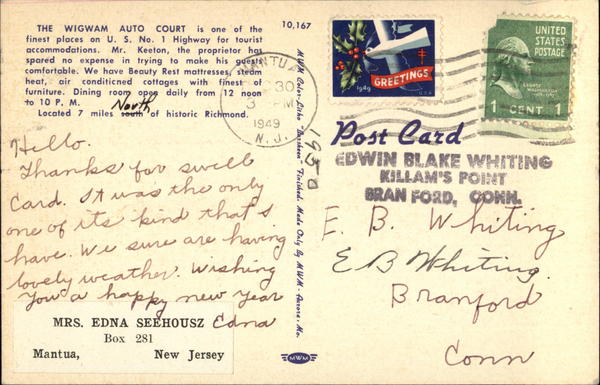 THE WIGWAM AUTO COURT is one of the
finest places on U. S. No. 1 Highway for tourist
accommodations. Mr. Keeton, the proprietor has
spared no expense in trying to make his guests
comfortable. We have Beauty Rest mattresses, steam
heat, air conditioned cottages with finest of
furniture. Dining room open daily from 12 noon
to 10 P. M.
North
Located 7 miles south of historic Richmond.
Hello.
Thanks for swell
Card. It was the only
one of its kind that I
have. We sure are having
lovely weather. Wishing
you a happy new year
Edna
MRS. EDNA SEEHOUSZ
Box 281
Mantua, New Jersey
10,167
MANTUA
30
3 PM
1949
N. J.
1950
MWM Color-Litho Finished. Made Only By MWM - Aurora, Mo.
MWM
GREETINGS
1949
U.S.A.
UNITED
STATES
POSTAGE
1 CENT 1
Post Card
EDWIN BLAKE WHITING
KILLAM'S POINT
BRANFORD, CONN.
E. B. Whiting
E B Whiting.
Branford
Conn